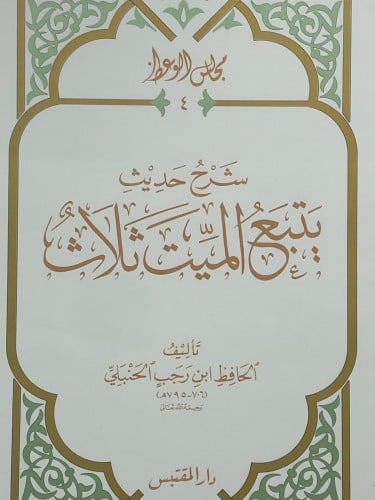 مجالس الوعظ
٤
شَرْحُ حَدِيْثِ
يَتبَعُ الميِّتَ ثَلَاثٌ
تَأليْفُ
الحَافِظِ ابنِ رَجَبٍ الحَنبَلِيِّ
(٧٠٦-٧٩٥هـ)
رَحِمَهُ اللهُ تعَالى
دار المقتبس